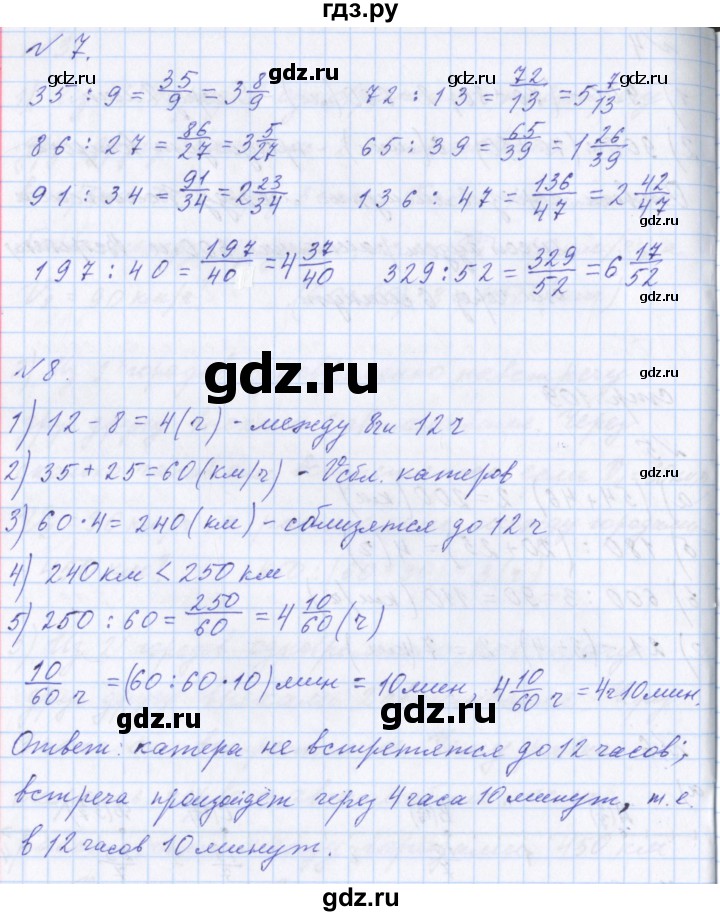 гдз.ру
№ 7.
35 : 9 = 35/9 = 3 8/9   72 : 13 = 72/13 = 5 7/13
gdz.ru gdz.ru
86 : 27 = 86/27 = 3 5/27   65 : 39 = 65/39 = 1 26/39
91 : 34 = 91/34 = 2 23/34   136 : 47 = 136/47 = 2 42/47
gdz.ru
197 : 40 = 197/40 = 4 37/40   329 : 52 = 329/52 = 6 17/52
gdz.ru
№ 8.
gdz.ru
1) 12 - 8 = 4 (ч) - между 8 и 12 ч
2) 35 + 25 = 60 (км/ч) - Vсбл. катеров
gdz.ru
3) 60 · 4 = 240 (км) - сблизятся до 12 ч
4) 240 км < 250 км
gdz.ru gdz.ru
5) 250 : 60 = 250/60 = 4 10/60 (ч)
10/60 ч = (60 : 60 · 10) мин = 10 мин, 4 10/60 ч = 4 ч 10 мин.
gdz.ru gdz.ru
Ответ: катера не встретятся до 12 часов;
встреча произойдёт через 4 часа 10 минут, т.е.
gdz.ru
в 12 часов 10 минут.
gdz.ru gdz.ru